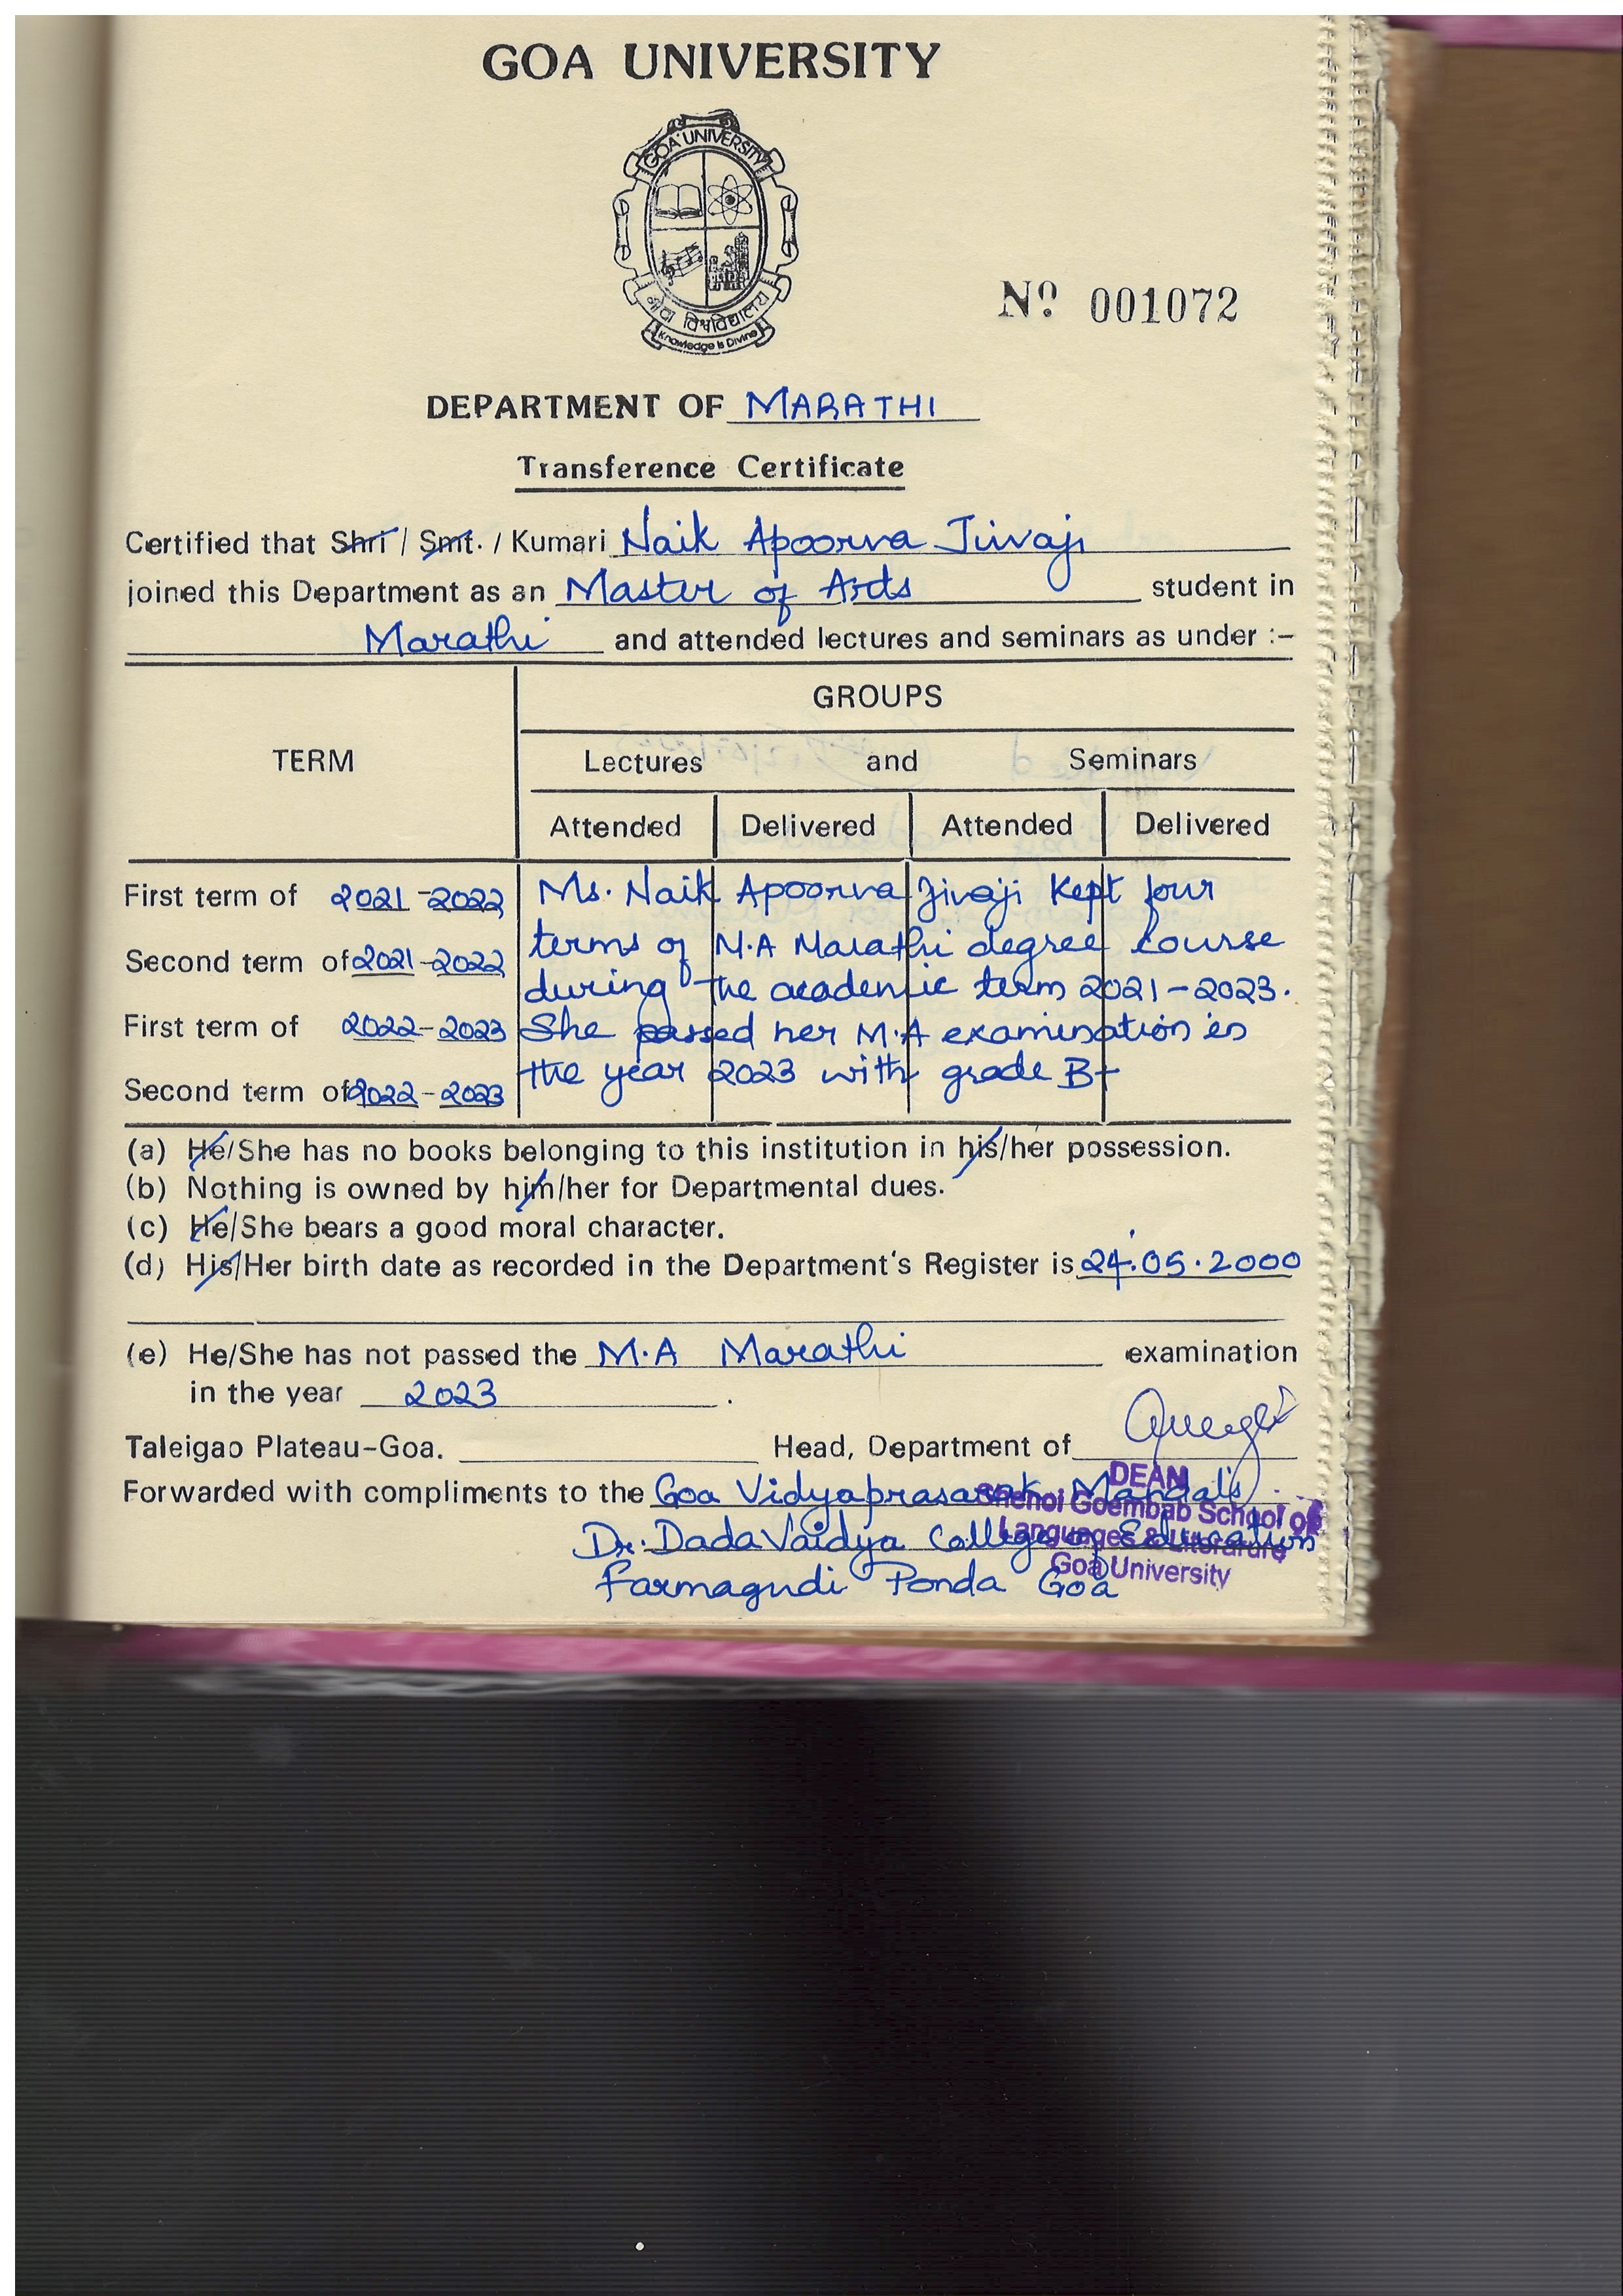 GOA UNIVERSITY
GOA UNIVERSITY
गोवा विश्वविद्यालय
Knowledge is Divine
Nº 001072
DEPARTMENT OF MARATHI
Transference Certificate
Certified that Shri / Smt. / Kumari Naik Apoorva Jivaji
joined this Department as an Master of Arts student in
Marathi and attended lectures and seminars as under :-
GROUPS
TERM Lectures and Seminars
Attended Delivered Attended Delivered
First term of 2021-2022
Second term of 2021-2022
First term of 2022-2023
Second term of 2022-2023
Ms. Naik Apoorva Jivaji Kept four
terms of M.A Marathi degree course
during the academic term 2021-2023.
She passed her M.A examination in
the year 2023 with grade B+
(a) He/She has no books belonging to this institution in his/her possession.
(b) Nothing is owned by him/her for Departmental dues.
(c) He/She bears a good moral character.
(d) His/Her birth date as recorded in the Department's Register is 24.05.2000
(e) He/She has not passed the M.A Marathi examination
in the year 2023 .
Taleigao Plateau-Goa. Head, Department of
Forwarded with compliments to the Goa Vidyaprasarak Mandal's
Dr. Dada Vaidya College of Education
Farmagudi Ponda Goa
DEAN
Shenoi Goembab School of
Languages & Literature
Goa University